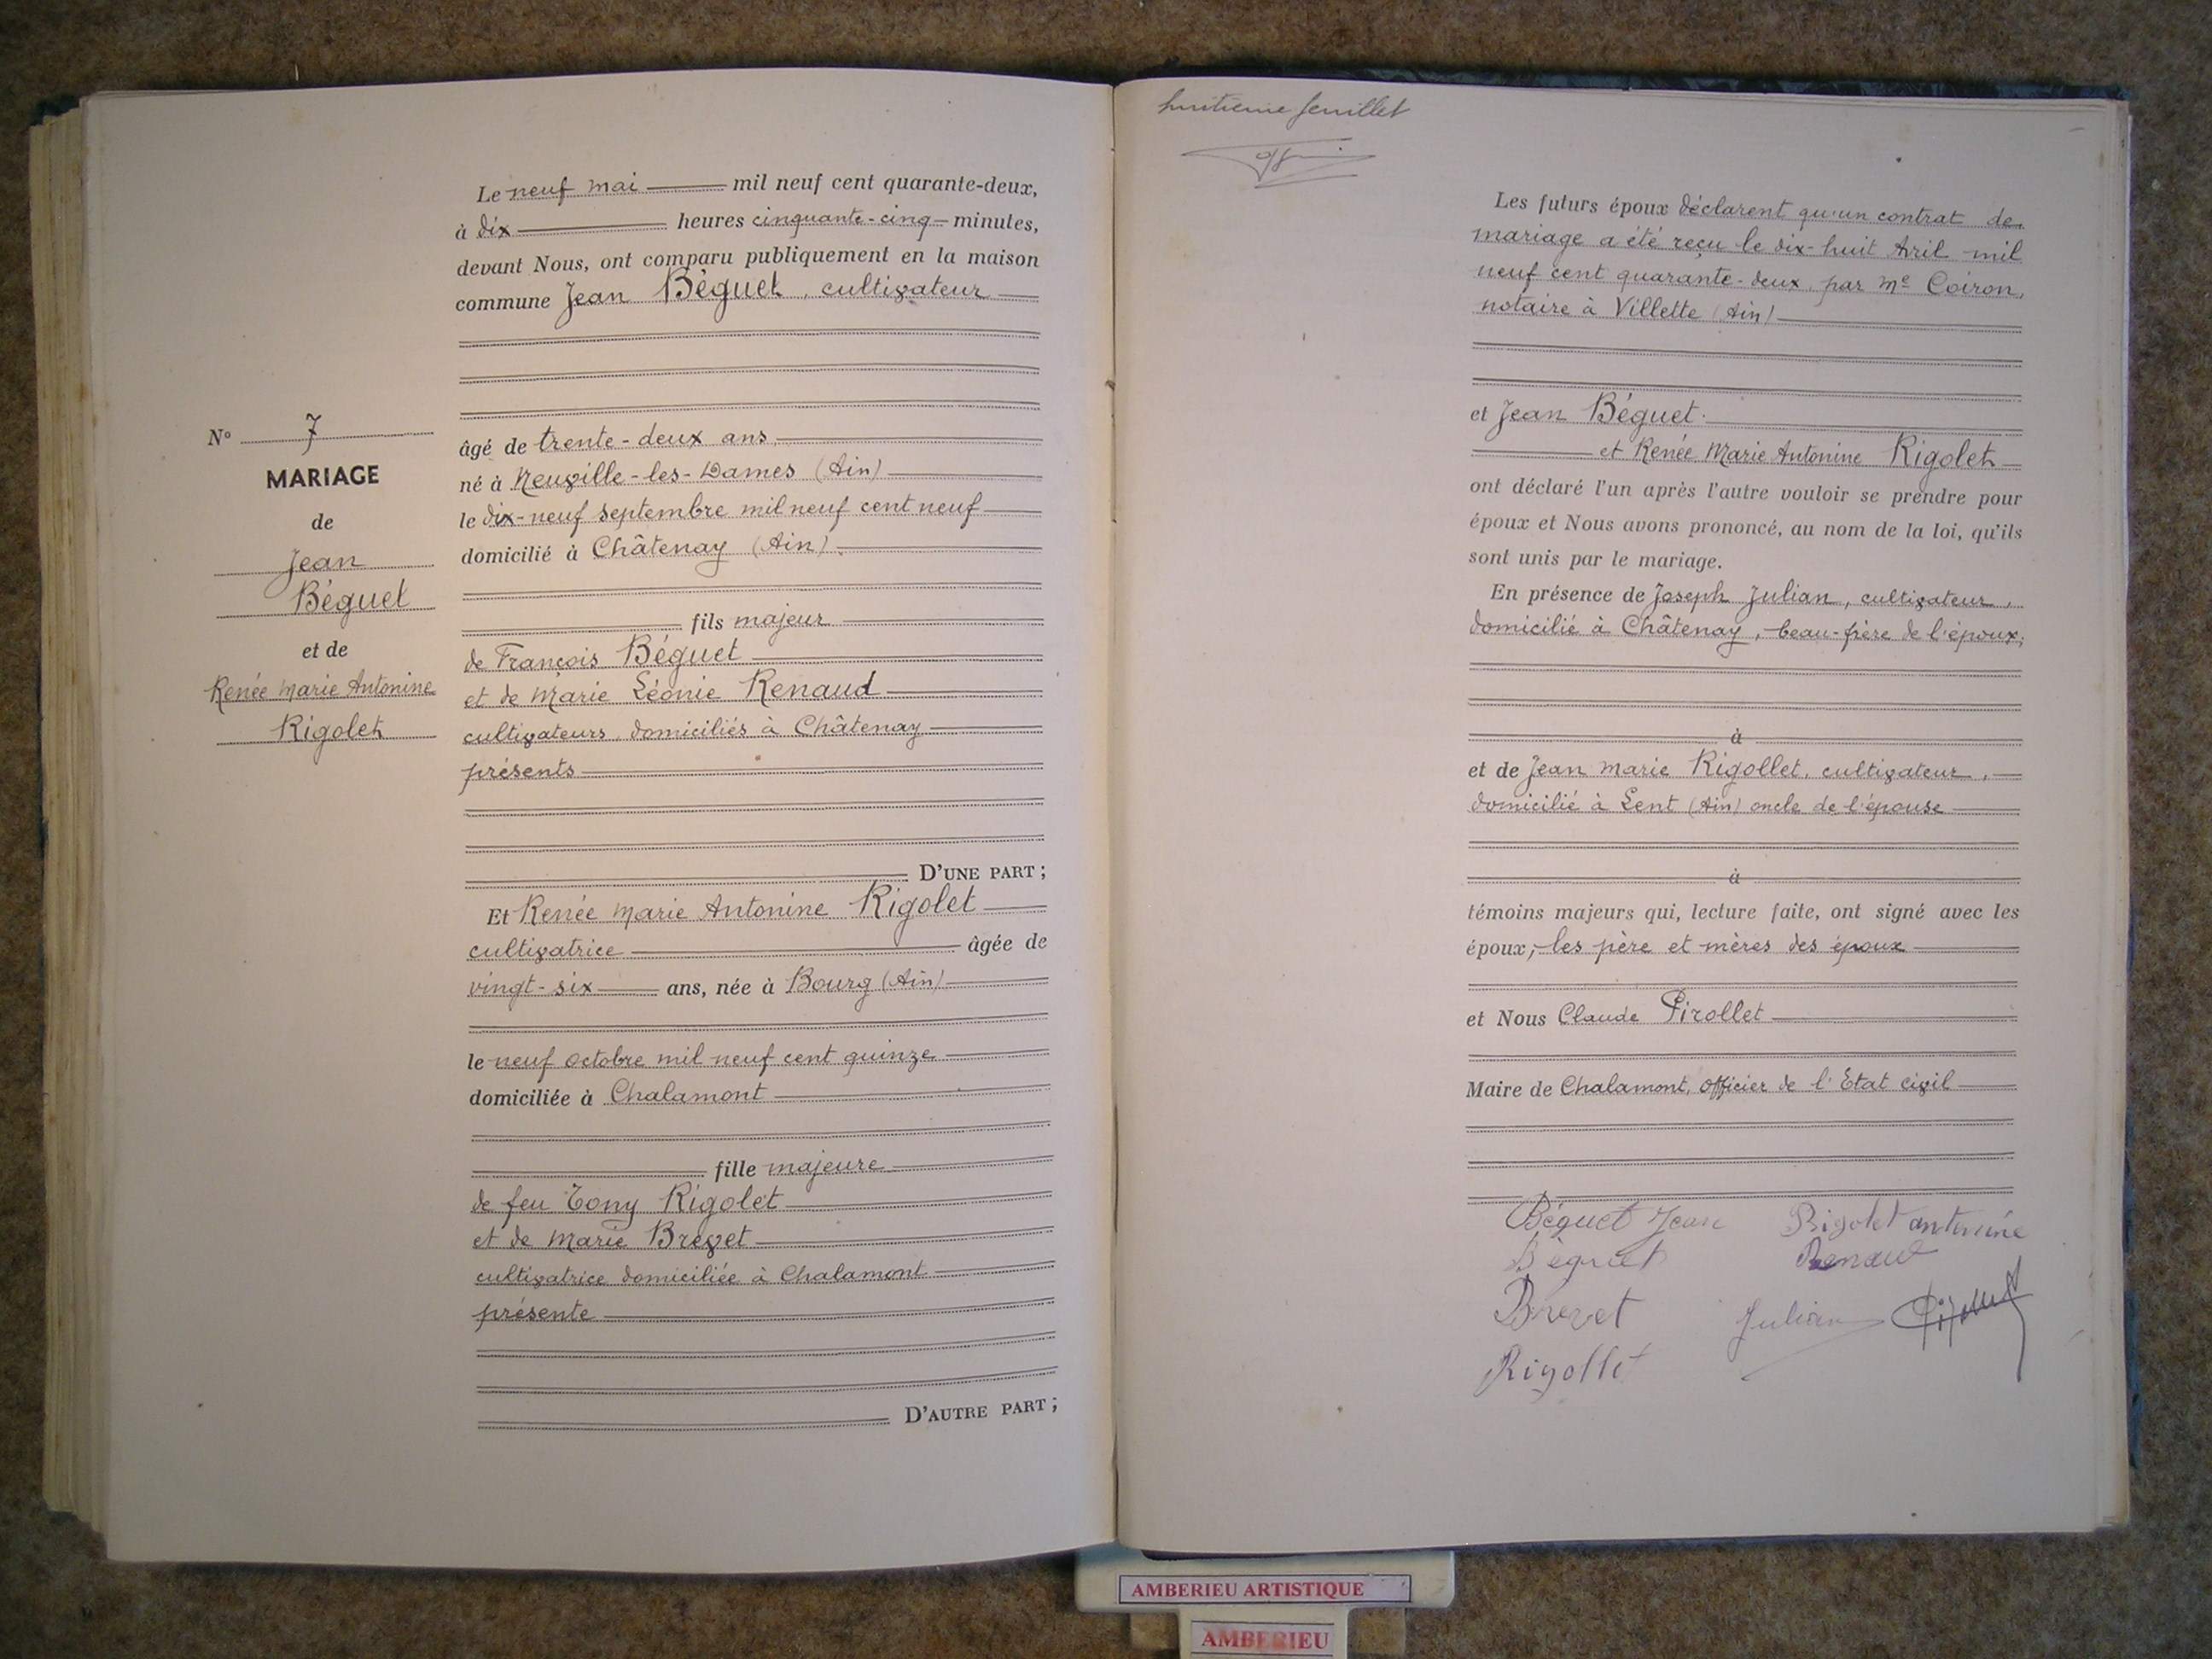 Le neuf mai mil neuf cent quarante-deux,
à dix heures cinquante-cinq minutes,
devant Nous, ont comparu publiquement en la maison
commune Jean Béguet, cultivateur
âgé de trente-deux ans
né à Neuville-les-Dames (Ain)
le dix-neuf septembre mil neuf cent neuf
domicilié à Châtenay (Ain).
fils majeur
de François Béguet
et de Marie Léonie Renaud
cultivateurs domiciliés à Châtenay
présents
D'UNE PART ;
Et Renée Marie Antonine Rigolet
cultivatrice âgée de
vingt-six ans, née à Bourg (Ain)
le neuf octobre mil neuf cent quinze
domiciliée à Chalamont
fille majeure
de feu Tony Rigolet
et de Marie Brevet
cultivatrice domiciliée à Chalamont
présente
D'AUTRE PART ;
No 7
MARIAGE
de
Jean
Béguet
et de
Renée Marie Antonine
Rigolet
huitième feuillet
Les futurs époux déclarent qu'un contrat de
mariage a été reçu le dix-huit Avril mil
neuf cent quarante-deux par Me Coiron,
notaire à Villette (Ain)
et Jean Béguet.
et Renée Marie Antonine Rigolet
ont déclaré l'un après l'autre vouloir se prendre pour
époux et Nous avons prononcé, au nom de la loi, qu'ils
sont unis par le mariage.
En présence de Joseph Julian, cultivateur,
domicilié à Châtenay, beau-frère de l'époux,
à
et de Jean Marie Rigollet, cultivateur,
domicilié à Lent (Ain) oncle de l'épouse
à
témoins majeurs qui, lecture faite, ont signé avec les
époux, les père et mères des époux
et Nous Claude Pirollet
Maire de Chalamont, Officier de l'Etat civil
Béguet Jean Rigolet antonine
Béguet Renaud
Brevet Julian Pirollet
Rigollet
AMBERIEU ARTISTIQUE
AMBERIEU